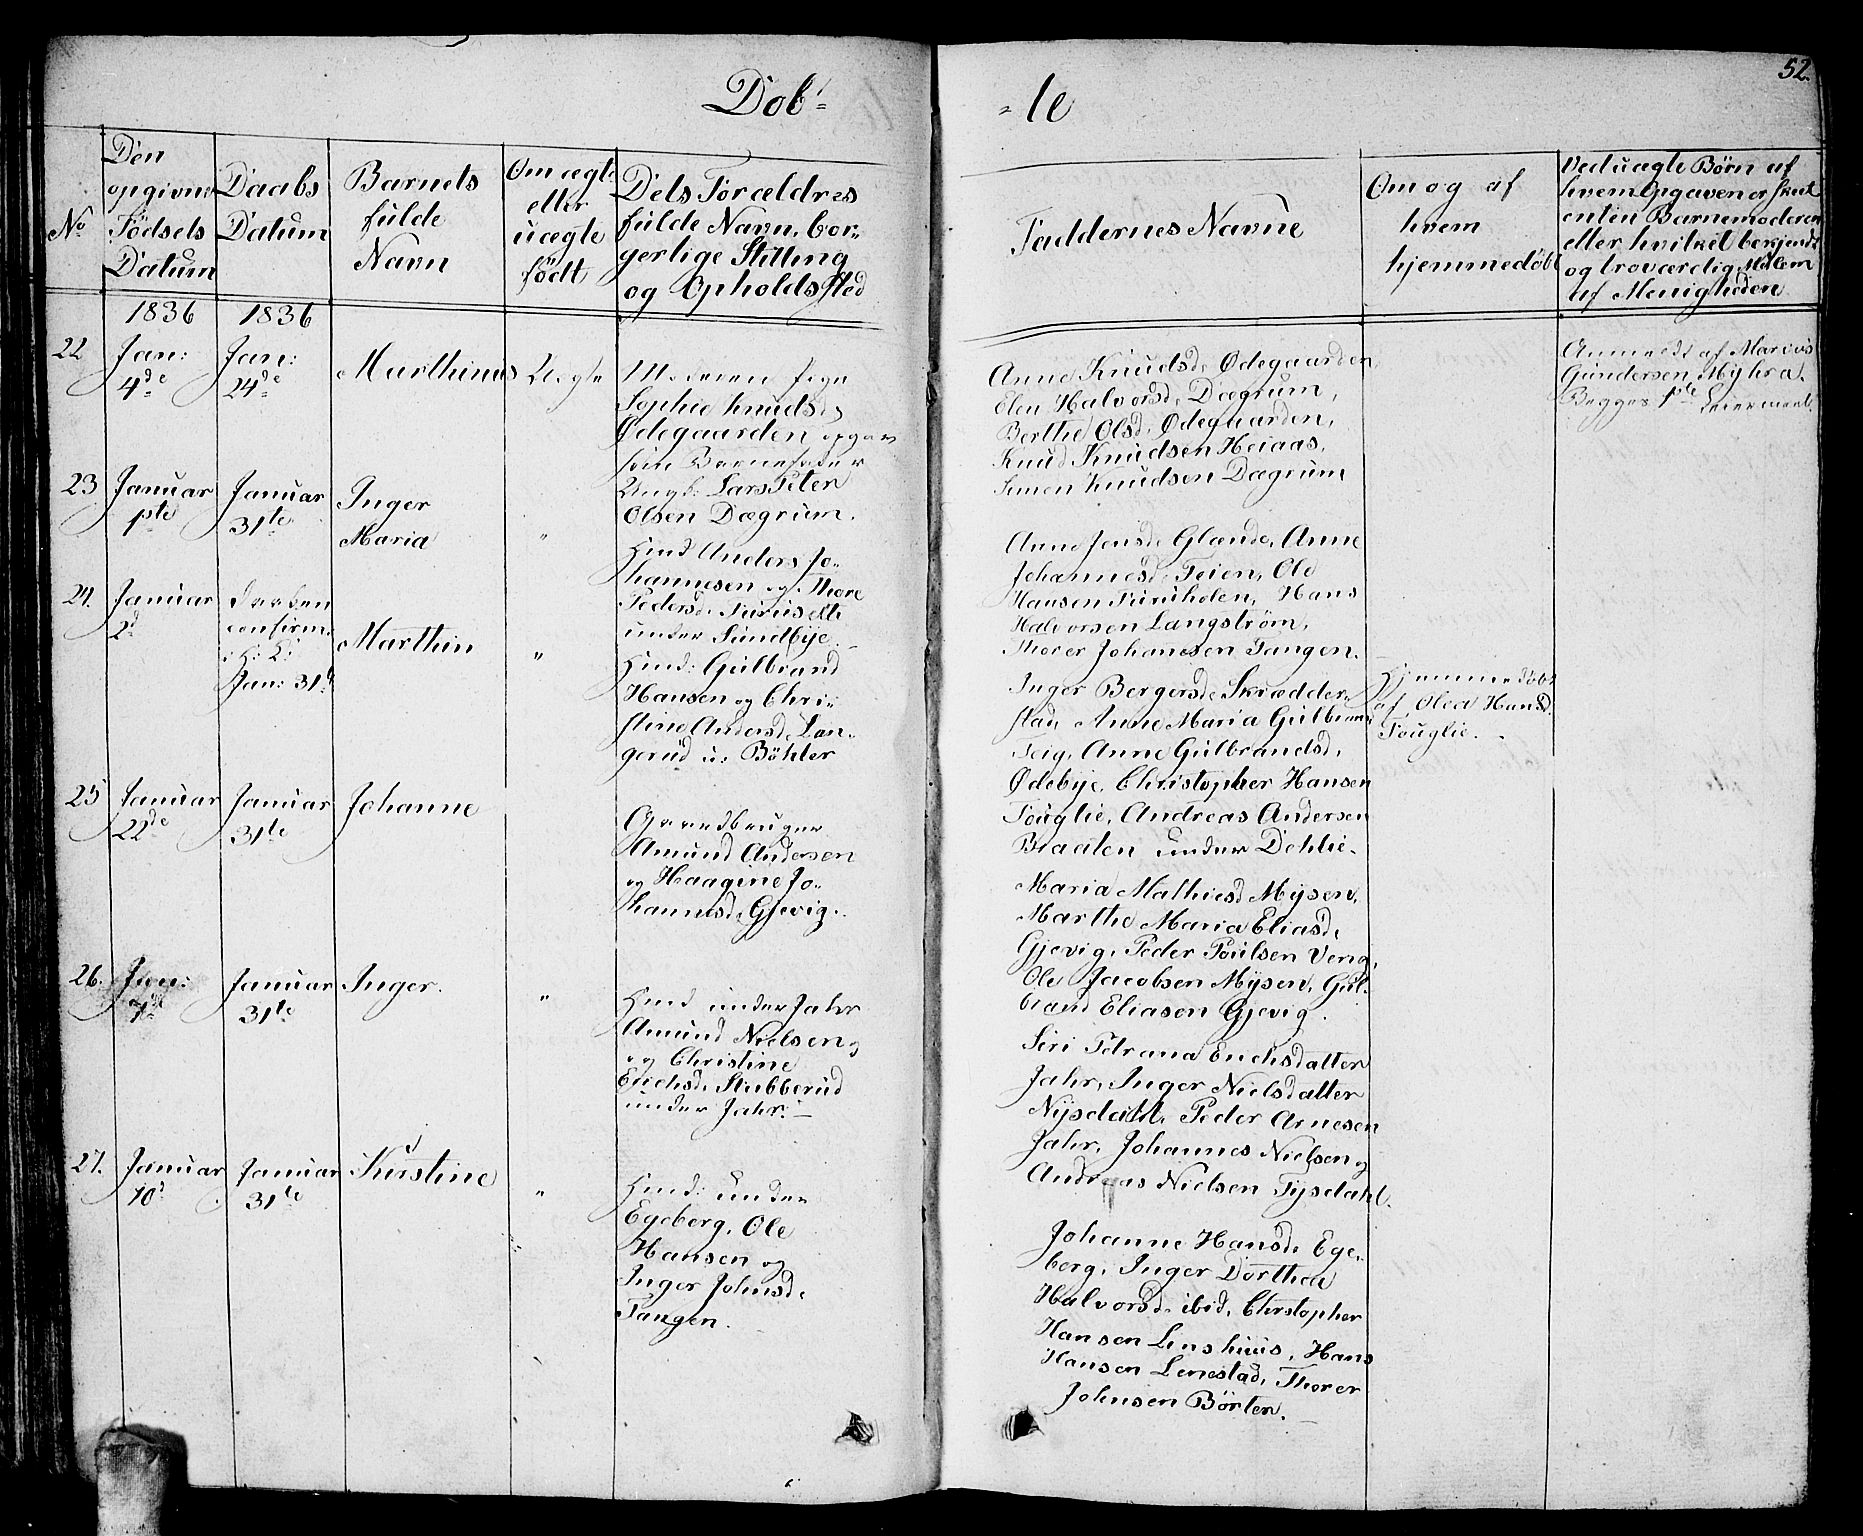 52.
Døb-
-te
No
Den
opgivne
Fødsels
Datum
Daabs
Datum
Barnets
fulde
Navn
Om ægte
eller
uægte
født
Dets Forældres
fulde Navn, bor-
gerlige Stilling
og Opholdssted
Faddernes Navne
Om og af
hvem
hjemmedøbt
Ved uægte Børn af
hvem Opgaven er skeet
enten Barnemoderen
eller hvilket bekjendt
og troværdig Medlem
af Menigheden
1836
1836
22
Jan:
4de
Jan:
24de
Marthinus
Uægte
Moderen Pige
Sophie Knudsd.
Ødegaarden opgav
som Barnefader
Ungk. Lars Peter
Olsen Dægrum.
Anne Knudsd. Ødegaarden,
Elen Halvorsd. Dægrum,
Berthe Olsd. Ødegaarden,
Knud Knudsen Heiaas,
Simen Knudsen Dægrum
Anmeldt af Marius
Gundersen Myhra.
Begges 1ste Leiermaal.
23
Januar
1ste
Januar
31te
Inger
Maria
"
Huusd Anders Jo-
hannesen og Thore
Pedersd.
under Sundbye.
Anne Jensd. Glænde, Anne
Johannesd. Teien, Ole
Hansen Furuholen, Hans
Halvorsen Langstrøm,
Thorer Johansen Tangen.
24.
Januar
2d
Daaben
confirm.
i H: K:
Jan: 31te
Marthin
"
Huusd: Gulbrand
Hansen og Chri-
stine Andersd. Lan-
gerud u: Bøhler
Inger Bergersd. Skrædder-
stad, Anne Maria Gulbrand
Teig, Anne Gulbrandsd.
Ødebye, Christopher Hansen
Fouglie, Andreas Andersen
Braaten under Dehlie.
Hjemmedøbt
af Olea Hansd.
Fouglie.
25
Januar
22de
Januar
31te
Johanne
Gaardbruger
Amund Andersen
og Haagine Jo-
hannesd. Gjevig.
Maria Mathiesd Mysen,
Marthe Maria Eliasd.
Gjevig, Peder Poulsen Veng,
Ole Jacobsen Mysen, Gul-
brand Eliasen Gjevig.
26.
Jan:
7de
Januar
31te
Inger.
"
Huusd under Jahr
Amund Nielsen
og Christine
Erichsd. Stubberud
under Jahr.
Siri Petrana Erichsdatter
Jahr, Inger Nielsdatter
Nysdahl, Peder Arnesen
Jahr, Johannes Nielsen og
Andreas Nielsen Tysdahl.
27.
Januar
10d
Januar
31te
Kirstine
"
Huusd: under
Egeberg, Ole
Hansen og
Inger Johnsd.
Tangen.
Johanne Hansd. Ege-
berg, Inger Dorthea
Halvorsd. ibid, Christopher
Hansen Linshuus, Hans
Hansen Lenestad, Thorer
Johnsen Børten.